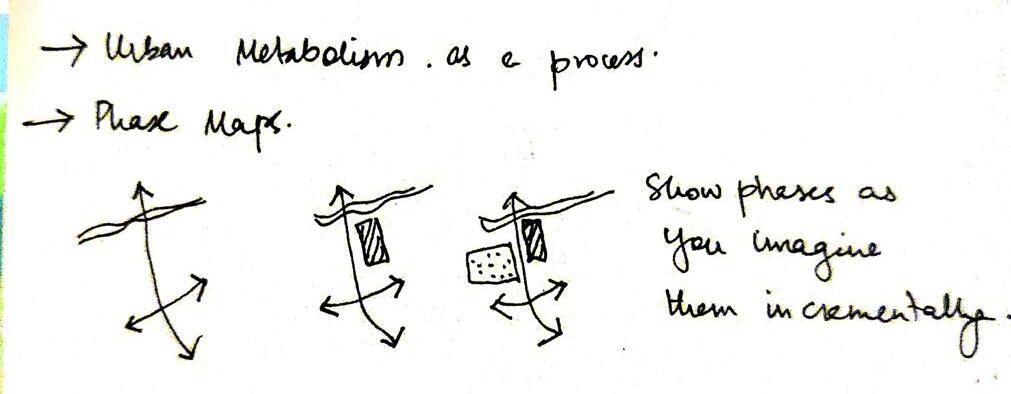 → Urban Metabolism. as a process.
→ Phase Maps.
Show phases as
you imagine
them incrementally.